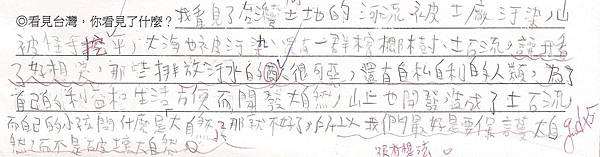 ◎看見台灣,你看見了什麼?我看見了台灣土地的河流被工廠汙染,山
被怪手挖平,大海也被汙染,還有一群檳榔樹、土石流,讓我看
了好想哭,那些排放汙水的人很可惡,還有自私自利的人類,為了
自己的利益和生活方便而開發大自然,山上也開發造成了土石流
而自己的小孩問什麼是大自然?那就不好了,所以我們最好是要保護大自
然,而不是破壞大自然。
很有想法。